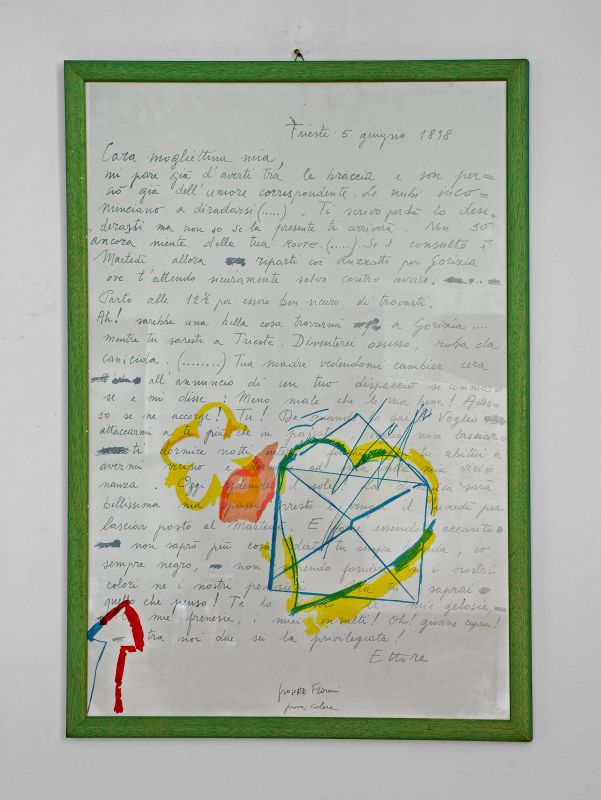 Trieste 5 giugno 1898
Cara mogliettina mia,
mi pare già d'averti tra le braccia e son per=
ciò già dell'umore corrispondente. Le nubi inco=
minciano a diradarsi (.....). Ti scrivo perchè lo desi=
derasti ma non so se la presente ti arriverà. Non so
ancora niente della tua ROUTE. (.....) Se il consulto è
Martedì allora riparti coi Luzzatto per Gorizia
ove t'attendo sicuramente salvo contro avviso.
Parto alle 12½ per essere ben sicuro di trovarti.
Ah! sarebbe una bella cosa trovarmi a Gorizia ....
mentre tu saresti a Trieste. Diventerei ossesso, roba da
camicia. (........) Tua madre vedendomi cambiar cera
all'annuncio di un tuo dispaccio si commos=
se e mi disse: Meno male che le vuoi bene! Ades=
so se ne accorge! Tu! Da quando lo sai? Voglio
attaccarmi a te più che in passato, non lasciar=
ti dormire notti abitui a
avermi vicino e mia vici=
nanza. Oggi splende il sole! La domenica sarà
bellissima ma passi presto e venga il lunedì per
lasciar posto al Martedì. E essendo accanto
non saprò più cosa dirti tu sempre io
sempre negro, non i nostri
colori ne i nostri pensieri tu saprai
quello che penso! Te lo mie gelosie,
mie frenesie, i miei insulti! Oh! giovine capra!
tra noi due sei la privilegiata!
Ettore
Giosetta Fioroni
prova colore